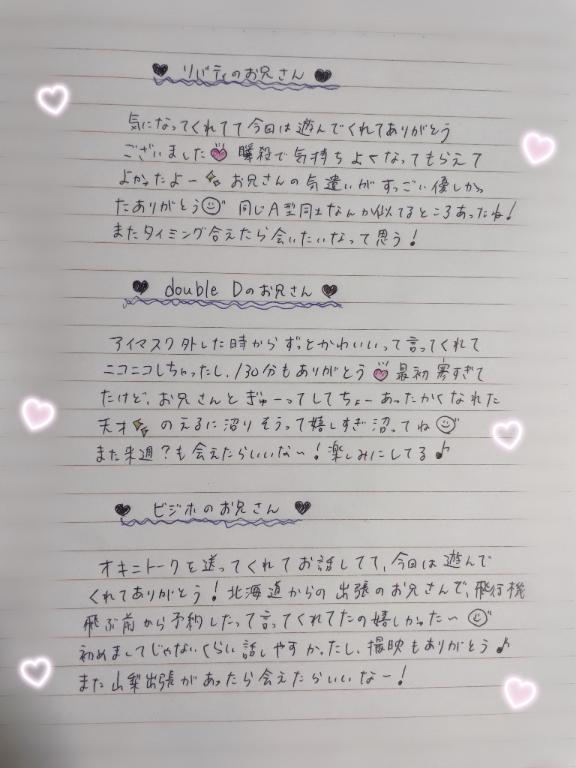 ♥ リバティのお兄さん ♥
気になってくれてて今日は遊んでくれてありがとう
ございました 瞬殺で気持ちよくなってもらえて
よかったよー お兄さんの気遣いがすっごい優しかっ
たありがとう 同じA型同士なんか似てるところあったね!
またタイミング合えたら会いたいなって思う!
♥ double Dのお兄さん ♥
アイマスク外した時からずっとかわいいって言ってくれて
ニコニコしちゃったし、130分もありがとう 最初寒すぎて
たけど、お兄さんとぎゅーってしてちょーあったかくなれた
天才 のえるに沼りそうって嬉しすぎ沼ってね
また来週?も会えたらいいなー!楽しみにしてる♪
♥ ビジホのお兄さん ♥
オキニトークを送ってくれてお話してて、今回は遊んで
くれてありがとう!北海道からの出張のお兄さんで、飛行機
飛ぶ前から予約したって言ってくれてたの嬉しかったー
初めましてじゃないくらい話しやすかったし、撮映もありがとう♪
また山梨出張があったら会えたらいいなー!